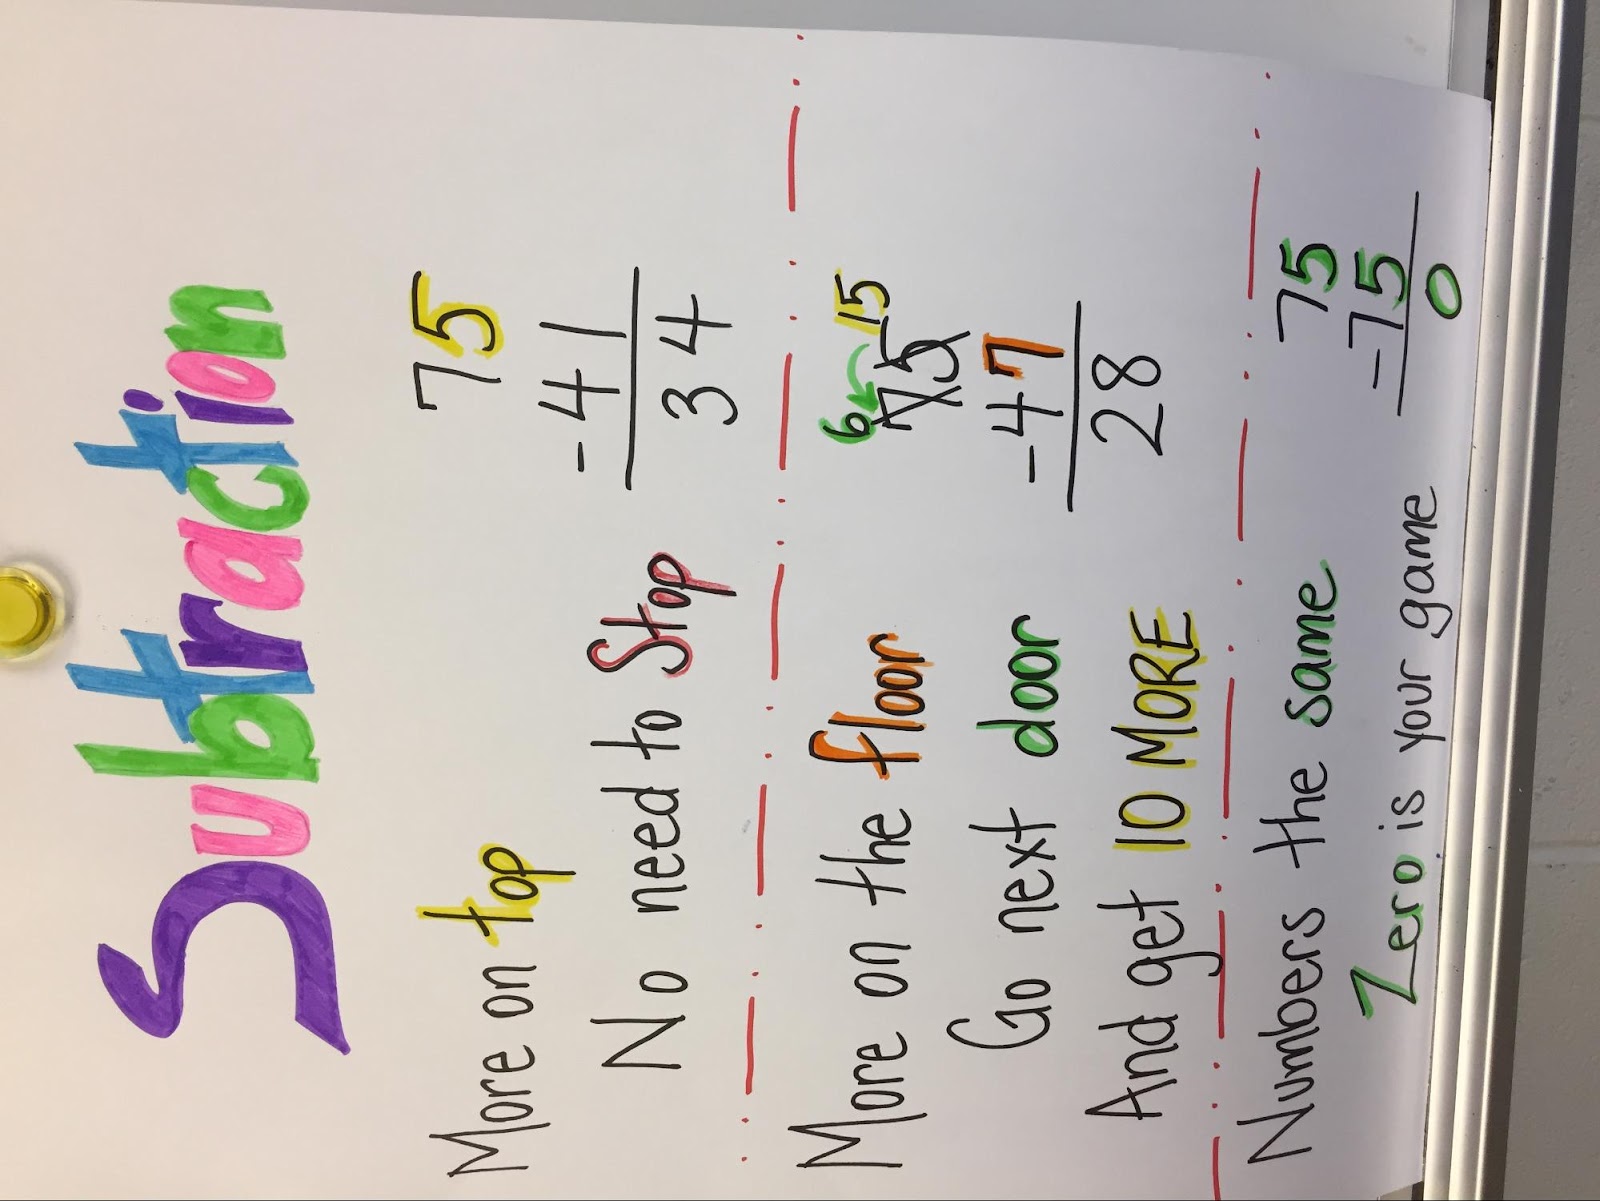 Subtraction
More on top
No need to Stop
75
-41
34
More on the floor
Go next door
And get 10 MORE
6 15
75
-47
28
Numbers the same
Zero is your game
75
-75
0